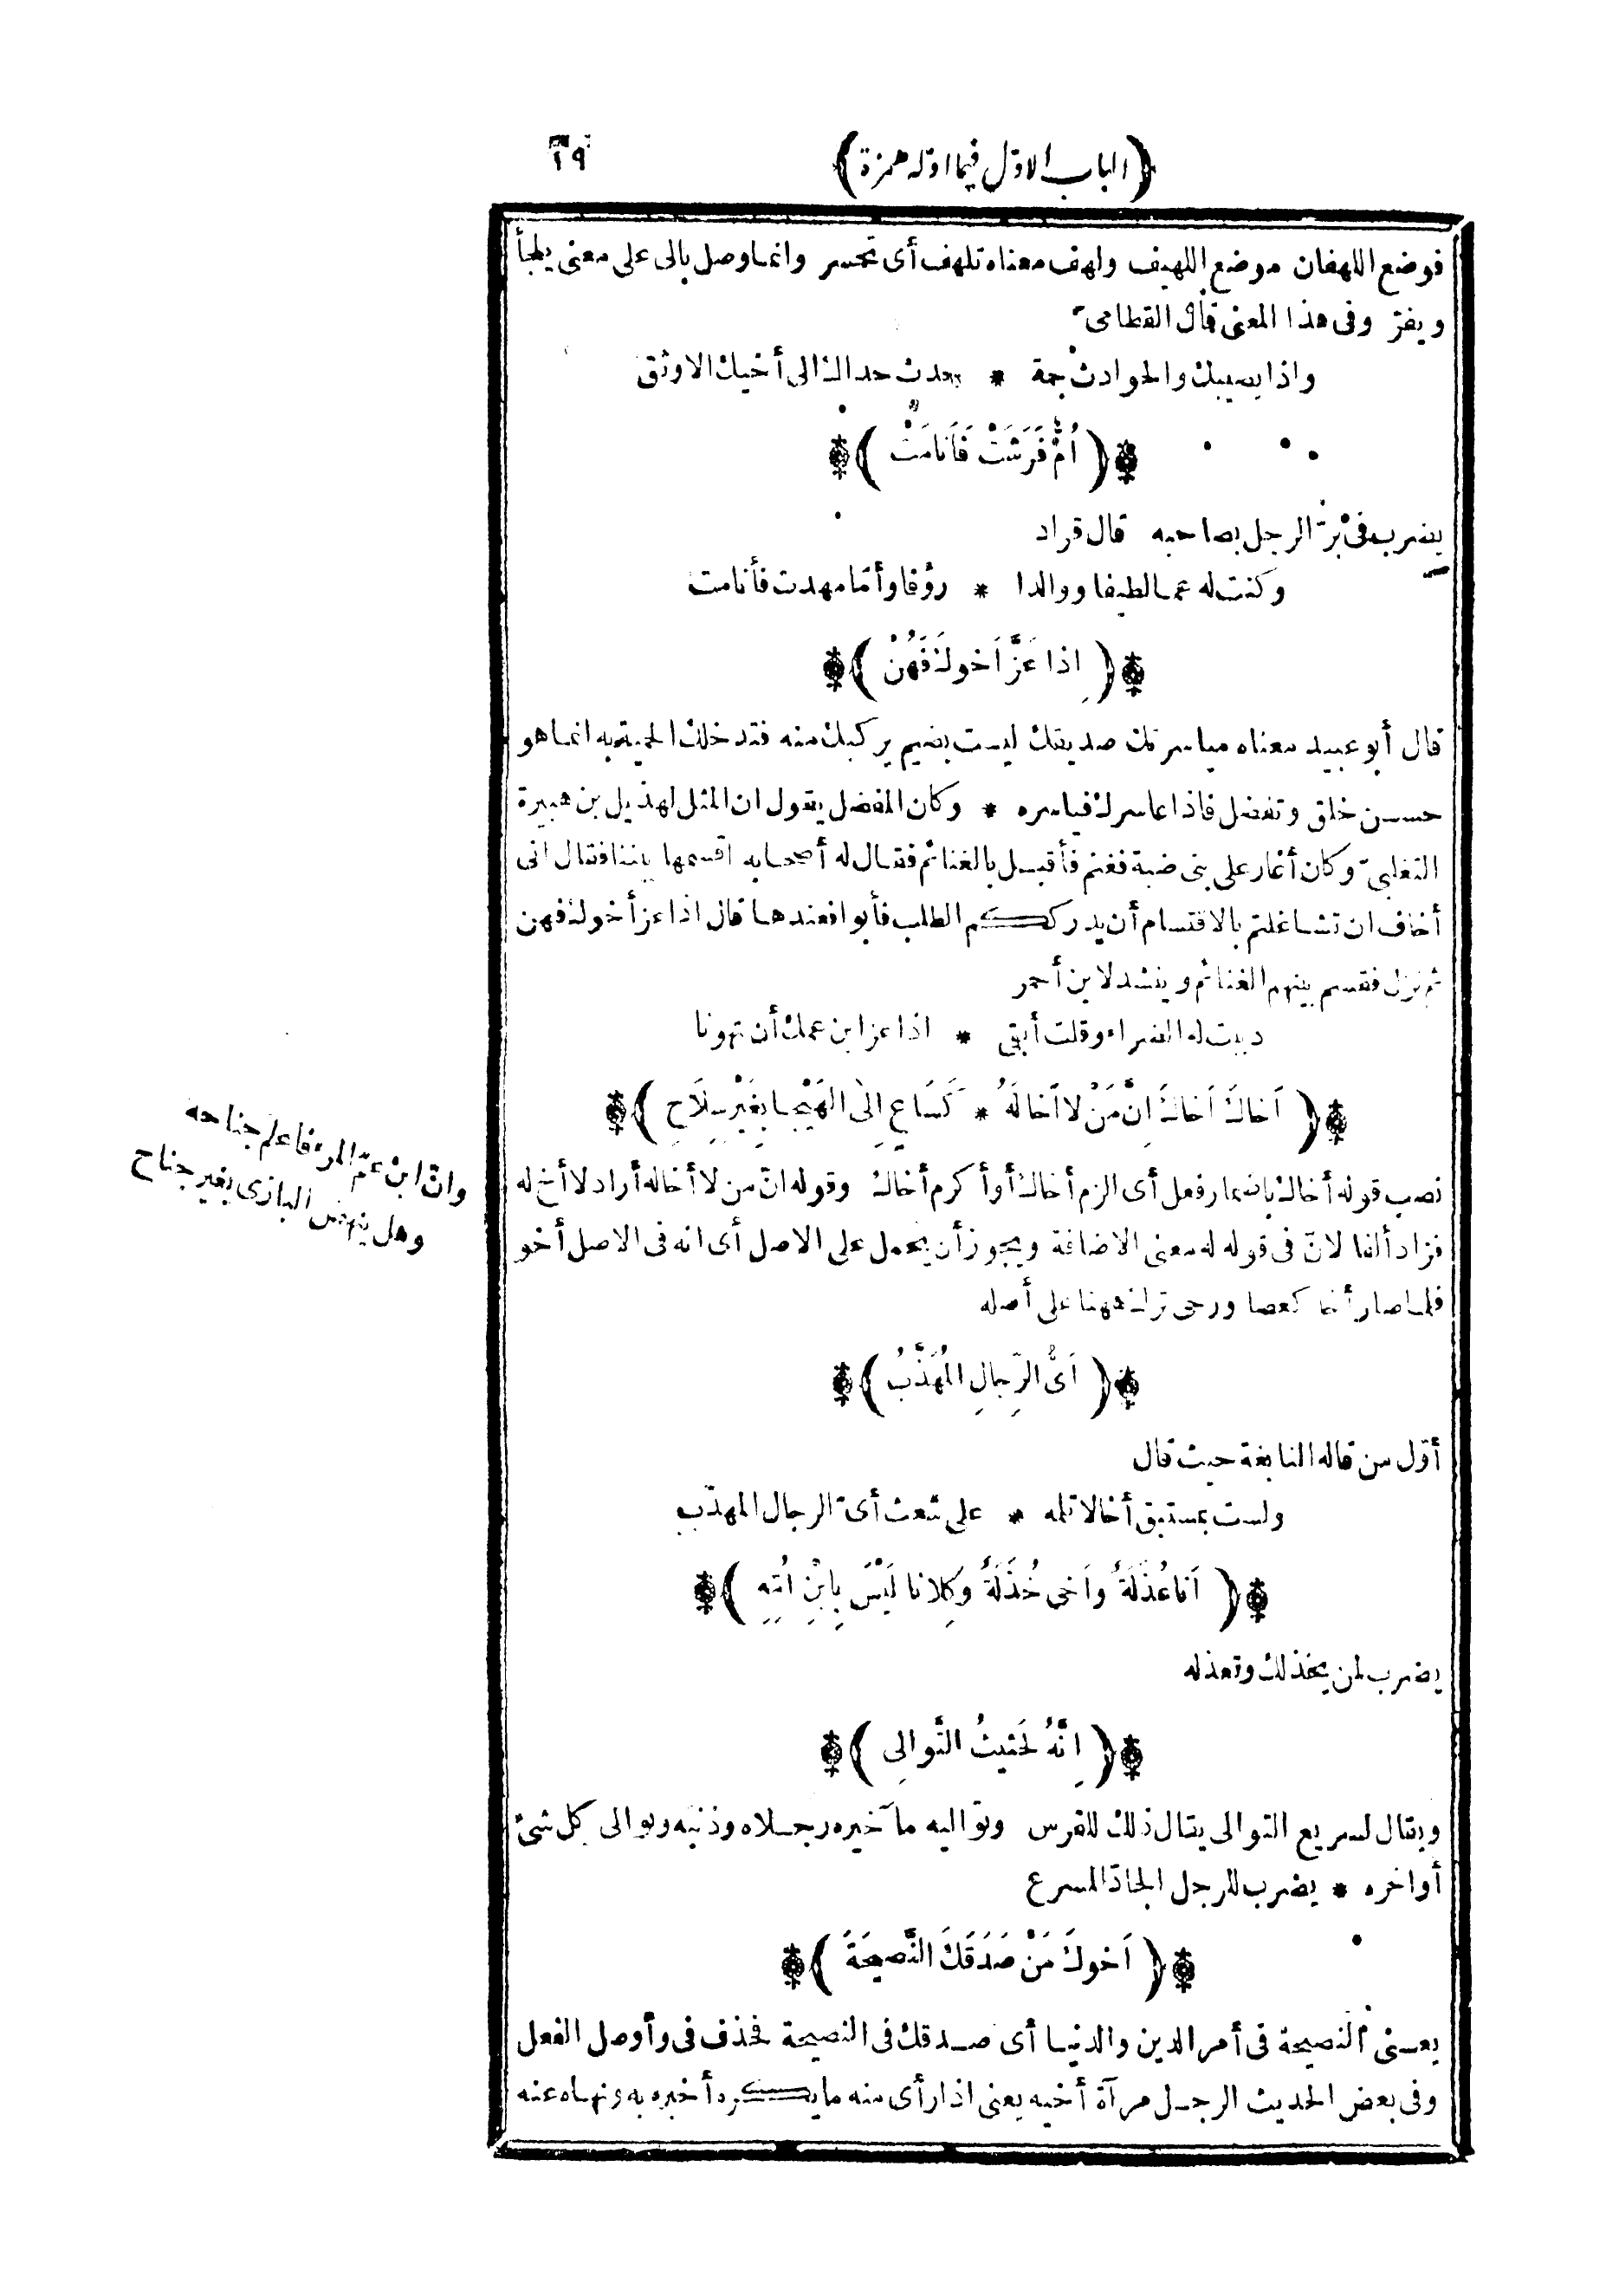 (الباب الاوّل فيما اوّله همزة) ١٩
فوضع اللهفان موضع اللهيف ولهف معناه تلهف أى تحسر وانما وصل بالى على معنى يلجأ
ويفرّ وفى هذا المعنى قال القطامىّ
واذا يصيبك والحوادث جمة * حدث حداك الى أخيك الاوثق
(اُمٌّ فَرَشَتْ فَاَنَامَتْ)
يضرب فى برّ الرجل بصاحبه قال قراد
وكنت له عما لطيفا ووالدا * رؤفا وأمّا مهدت فأنامت
(اِذا عَزَّ اَخوكَ فَهُنْ)
قال أبو عبيد معناه مياسرتك صديقك ليست بضيم يركبك منه فتدخلك الحمية به انما هو
حسن خلق وتفضل فاذا عاسرك فياسره * وكان المفضل يقول ان المثل لهذيل بن هبيرة
التغلبىّ وكان أغار على بنى ضبة فغنم فأقبل بالغنائم فقال له أصحابه اقسمها بيننا فقال انى
أخاف ان تشاغلتم بالاقتسام أن يدرككم الطلب فأبوا فعندها قال اذا عز أخوك فهن
ثم نزل فقسم بينهم الغنائم وينشد لابن أحمر
دببت له الضراء وقلت أبقى * اذا عز ابن عمك أن تهونا
(اَخاكَ اَخاكَ اِنَّ مَنْ لا اَخالَهُ * كَسَاعٍ اِلَى الهَيْجا بِغَيْرِ سِلَاحِ)
نصب قوله أخاك باضمار فعل أى الزم أخاك أو أكرم أخاك وقوله انّ من لا أخاله أراد لا أخ له
فزاد ألفا لانّ فى قوله له معنى الاضافة ويجوز أن يحمل على الاصل أى انه فى الاصل أخو
فلما صار أخا كعصا ورحى ترك ههنا على أصله
وانّ ابن عمّ المرء فاعلم جناحه
وهل ينهض البازى بغير جناح
(اَىُّ الرِّجالِ المُهَذَّبُ)
أوّل من قاله النابغة حيث قال
ولست بمستبق أخا لا تلمه * على شعث أىّ الرجال المهذّب
(اَنا عُذَلَةٌ وَاَخى خُذَلَةٌ وَكِلانا لَيْسَ بِابْنِ اُمِّهِ)
يضرب لمن يخذلك وتعذله
(اِنَّهُ لَحَثيثُ التَّوالِى)
ويقال لسريع التوالى يقال ذلك للفرس وتواليه مآخيره رجلاه وذنبه وتوالى كل شئ
أواخره * يضرب للرجل الجادّ المسرع
(اَخوكَ مَنْ صَدَقَكَ النَّصيحَةَ)
يعنى النصيحة فى أمر الدين والدنيا أى صدقك فى النصيحة فحذف فى وأوصل الفعل
وفى بعض الحديث الرجل مرآة أخيه يعنى اذا رأى منه ما يكره أخبره به ونهاه عنه